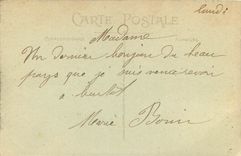 Lundi
CARTE POSTALE
Madame
Un dernier bonjour du beau
pays que je suis venue revoir
à
Marie Bonin